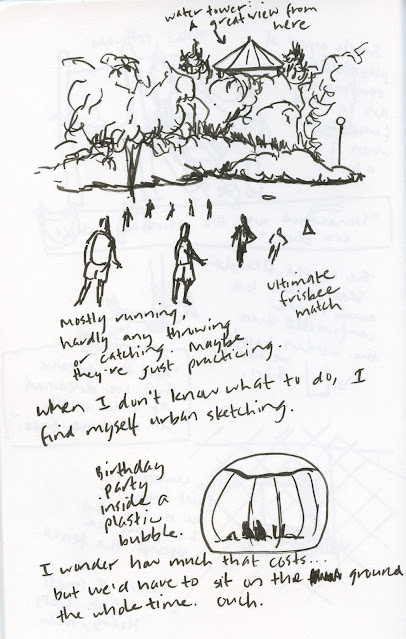 water tower:
a great view from
here
ultimate
frisbee
match
mostly running,
hardly any throwing
or catching. Maybe
they're just practicing.
when I don't know what to do, I
find myself urban sketching.
Birthday
party
inside a
plastic
bubble.
I wonder how much that costs...
but we'd have to sit on the ground
the whole time. Ouch.